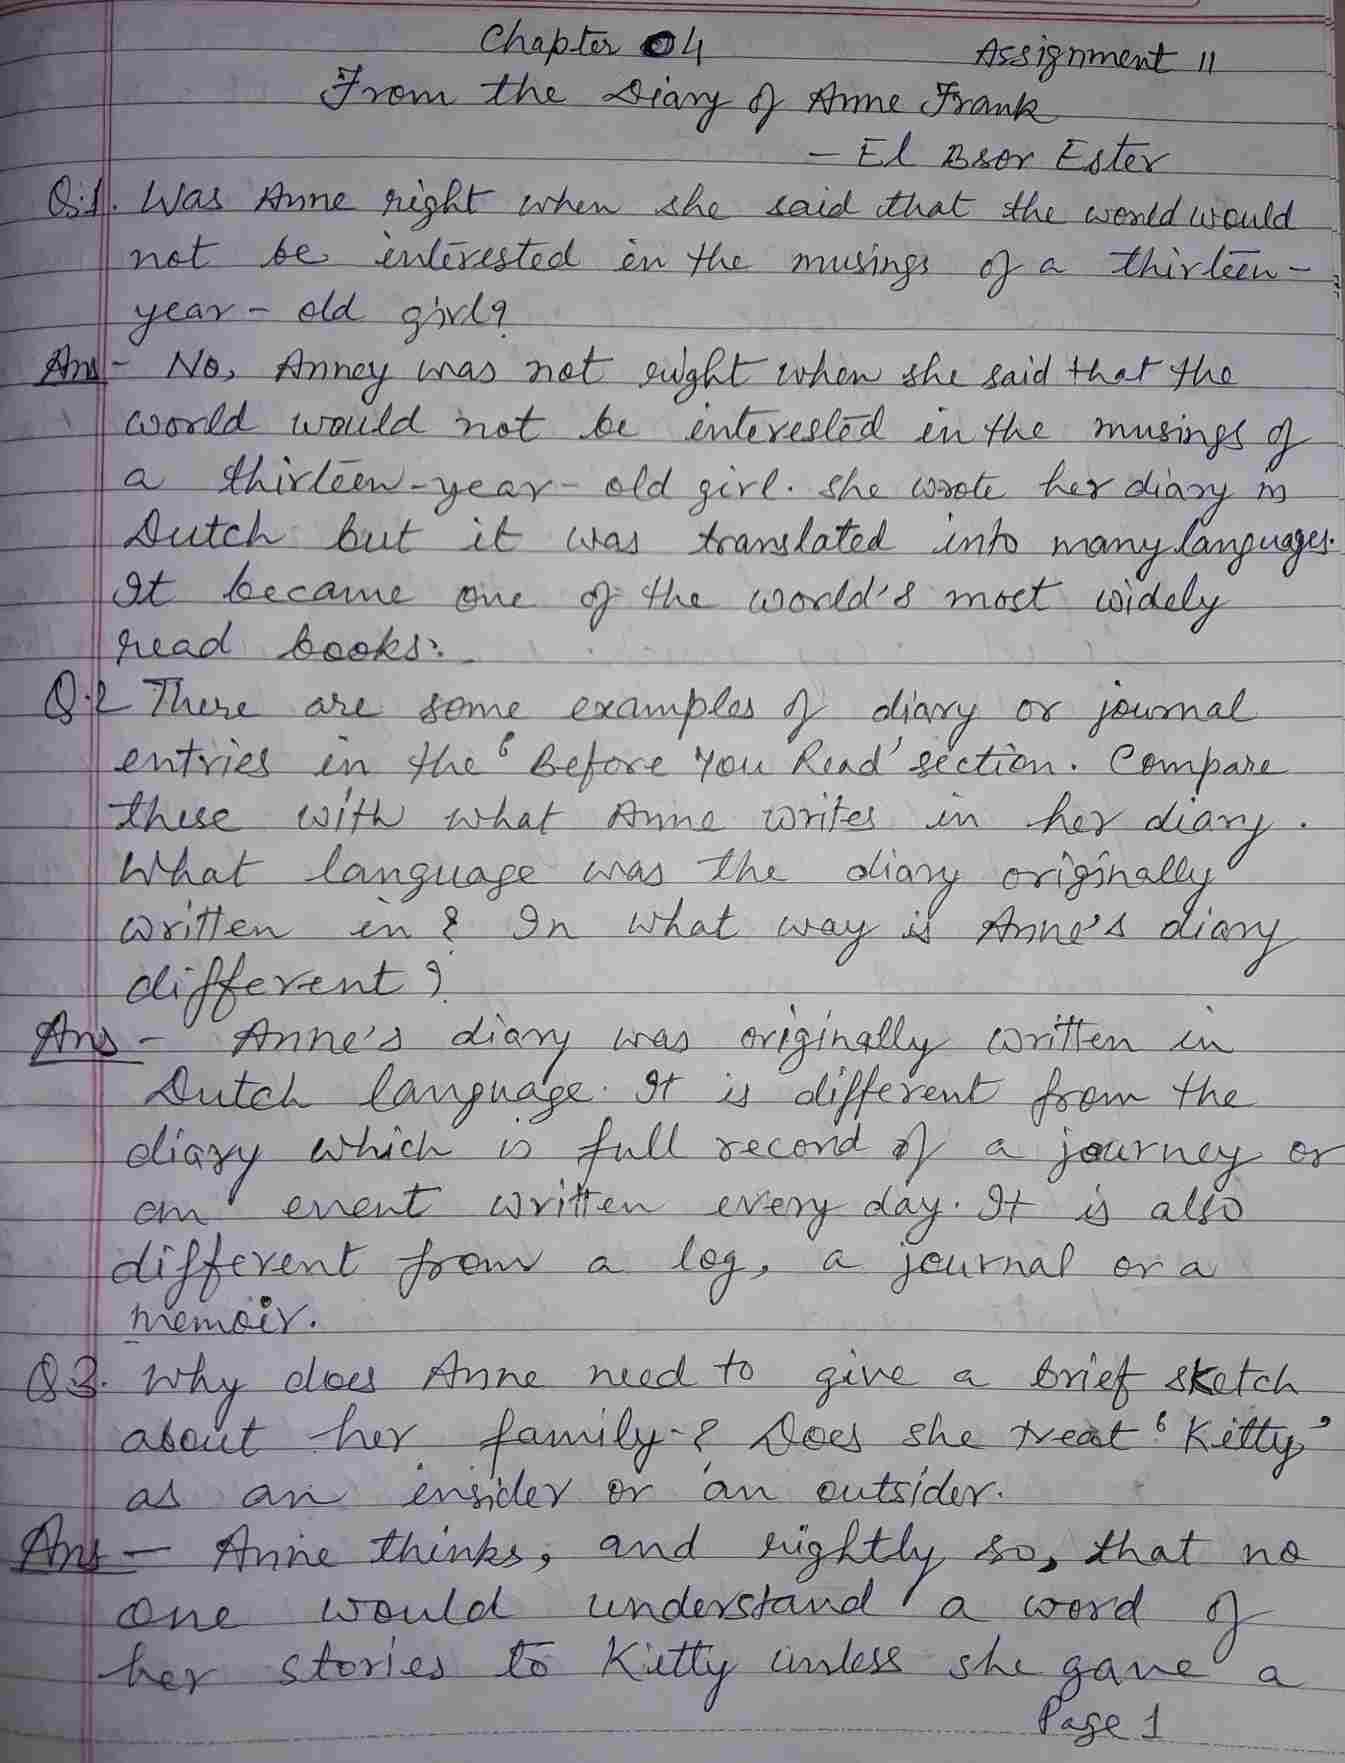 Chapter 04
Assignment 11
From the Diary of Anne Frank
- El Bsor Ester
Q.1. Was Anne right when she said that the world would
not be interested in the musings of a thirteen-
year-old girl?
Ans- No, Anney was not right when she said that the
world would not be interested in the musings of
a thirteen-year-old girl. She wrote her diary in
Dutch but it was translated into many languages.
It became one of the world's most widely
read books.
Q.2 There are some examples of diary or journal
entries in the 'Before You Read' section. Compare
these with what Anne writes in her diary.
What language was the diary originally
written in? In what way is Anne's diary
different?
Ans- Anne's diary was originally written in
Dutch language. It is different from the
diary which is full record of a journey or
an event written every day. It is also
different from a log, a journal or a
memoir.
Q3. Why does Anne need to give a brief sketch
about her family? Does she treat 'Kitty'
as an insider or an outsider.
Ans- Anne thinks, and rightly so, that no
one would understand a word of
her stories to Kitty unless she gave a
Page 1